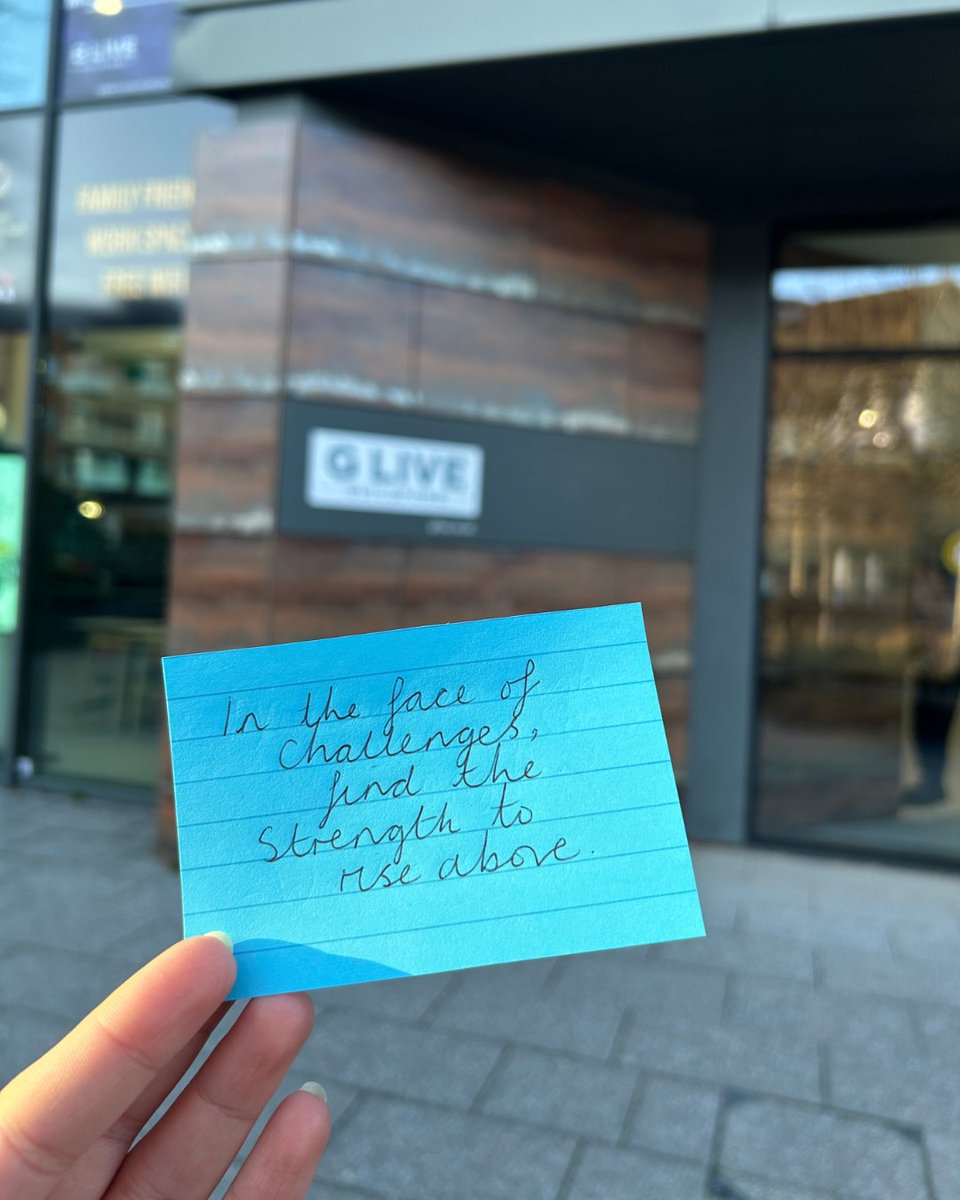 G LIVE
FAMILY FRIEN
WORK SPAC
FREE WIFI
G LIVE
In the face of
challenges,
find the
strength to
rise above.